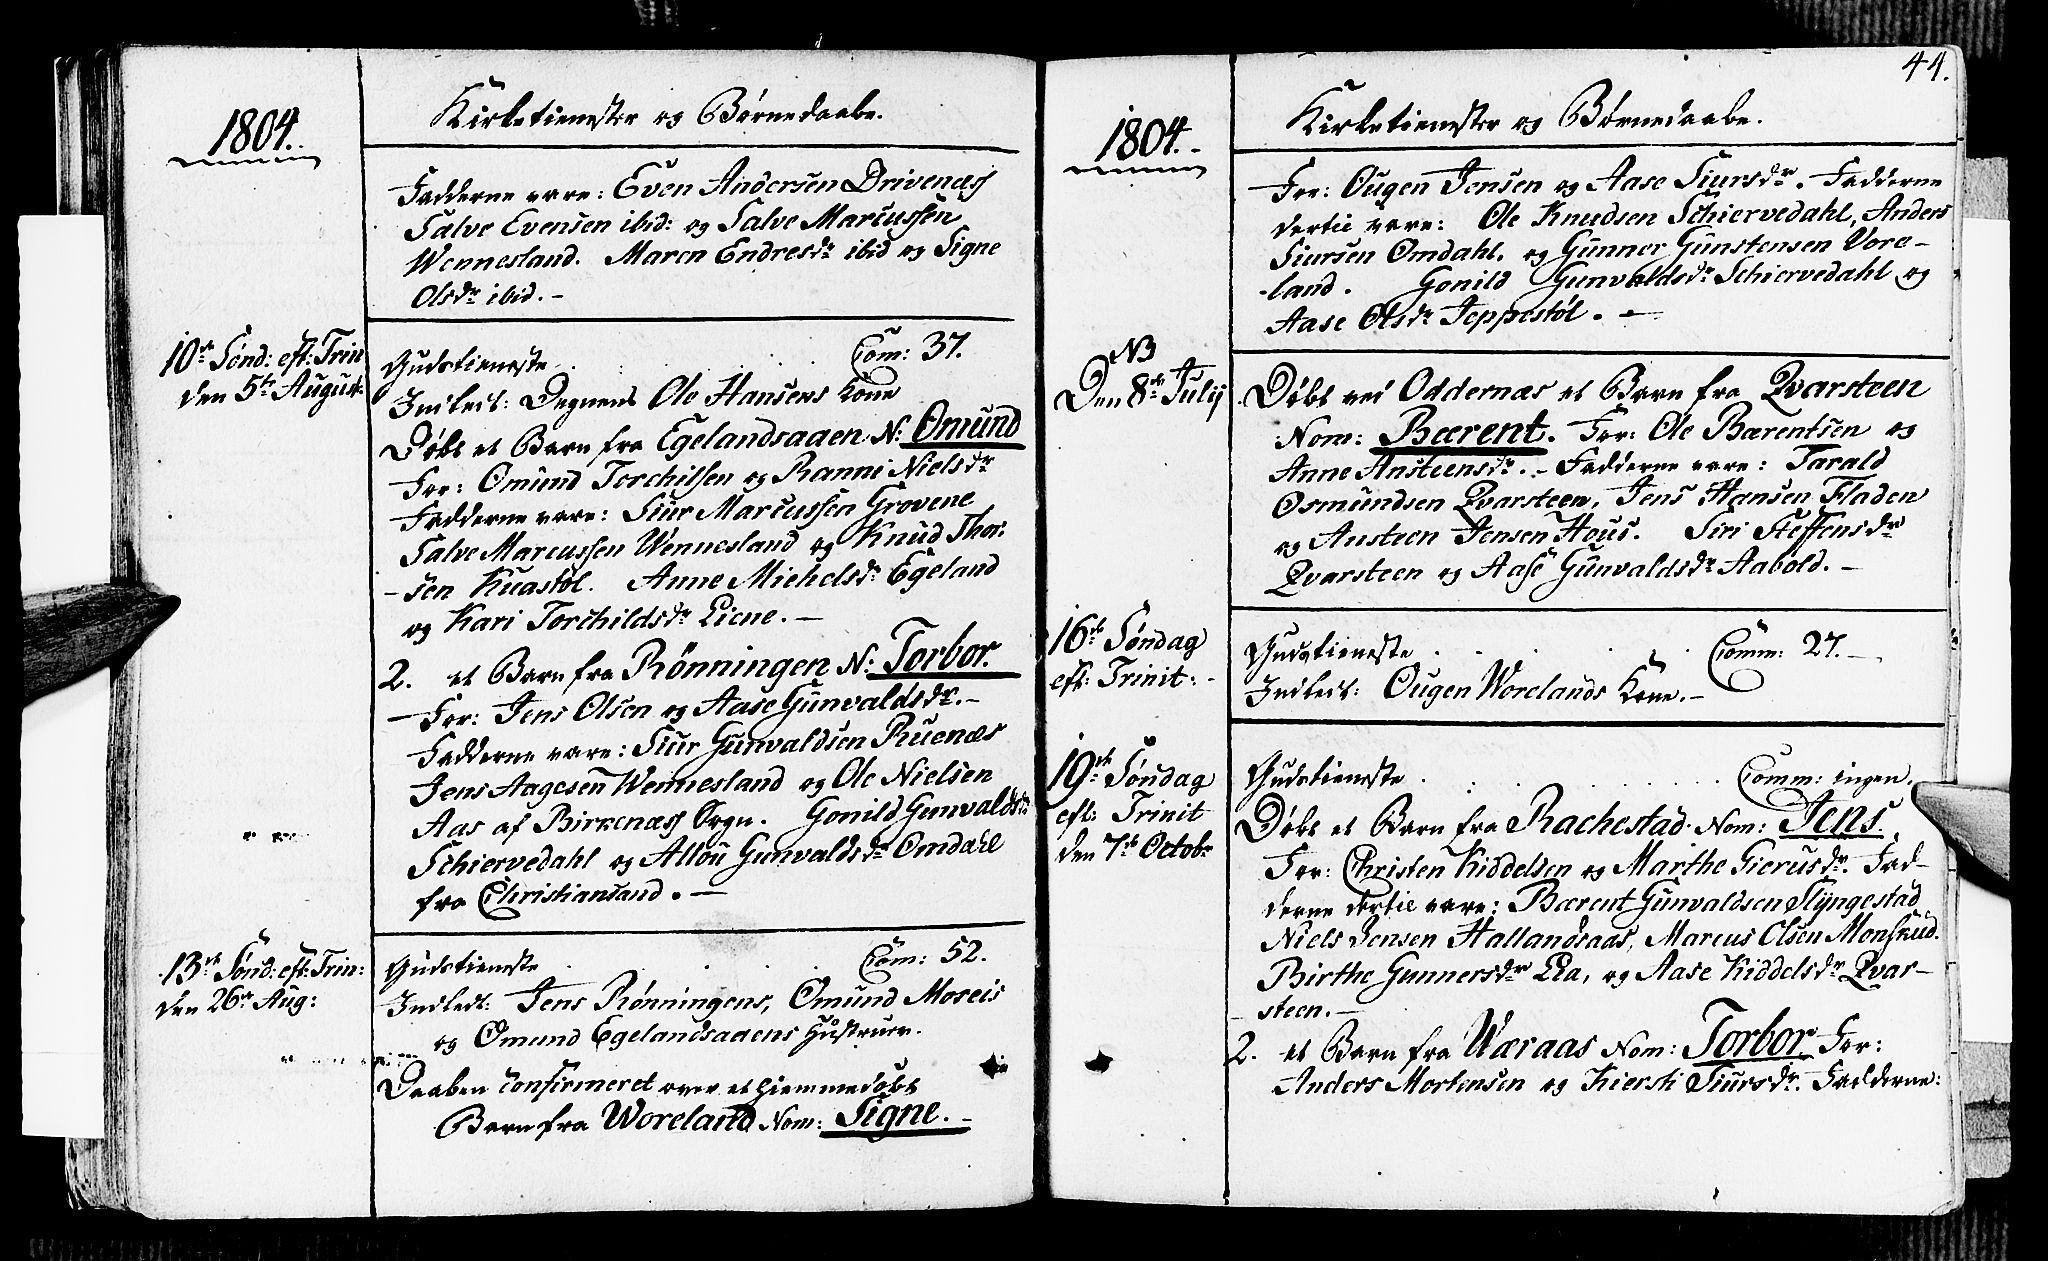 1804.
Kirketienester og Børnedaabe.
Fadderne vare: Even Andersen Drivenæss
Salve Evensen ibid: og Salve Marcussen
Wennesland. Maren Endresdr ibid og Signe
Olsdr ibid. -
10de Sønd: eft: Trin
den 5te August.
Gudstieneste . . . . Com: 37.
Indledt: Degnens Ole Hansens Kone
Døbt et Barn fra Egelandsaaen N: Omund
For: Omund Torchilsen og Ranni Nielsdr
Fadderne vare: Siur Marcussen Grovene
Salve Marcussen Wennesland og Knud Thor-
-sen Kuastøl. Anne Michelsdr Egeland
og Kari Torchildsdr Liene. -
2. et Barn fra Rønningen N: Torbor.
For: Jens Olsen og Aase Gunvaldsdr. -
Fadderne vare: Siur Gunvaldsen Ruenæs
Jens Aagesen Wennesland og Ole Nielsen
Aas af Birkenæss Sogn. Gonild Gunvaldsdr
Schiervedahl og Allou Gunvaldsdr Omdahl
fra Christiansand. -
13de Sønd: eft: Trin:
den 26de Aug:
Gudstieneste . . . Com: 52.
Indledt: Jens Rønningens, Omund Moseis
og Omund Egelandsaaens Hustruer.
Daaben confirmeret over et hiemmedøbt
Barn fra Woreland Nom: Signe. -
44.
1804. -
Kirketienester og Børnedaabe.
For: Ougen Jensen og Aase Siursdr. Fadderne
dertil vare: Ole Knudsen Schiervedahl, Anders
Siursen Omdahl. og Gunner Gunstensen Vore-
-land. Gonild Gunvaldsdr Schiervedahl og
Aase Olsdr Jeppestøl. -
NB
Den 8de Julij
Døbt ved Oddernæs et Barn fra Qvarsteen
Nom: Bærent. For: Ole Bærentsen og
Anne Ansteensdr. - Fadderne vare: Tarald
Osmundsen Qvarsteen, Jens Hansen Fladen
og Ansteen Jensen Hous. Siri Steffensdr
Qvarsteen og Aase Gunvaldsdr Aabold. -
16de Søndag
eft: Trinit: -
Gudstieneste . . . . Comm: 27. -
Indledt: Ougen Worelands Kone. -
19de Søndag
eft: Trinit
den 7de Octobr
Gudstieneste . . . . Comm: ingen.
Døbt et Barn fra Rachestad Nom: Jens.
For: Christen Kiddelsen og Marthe Gierusdr. Fad-
derne dertil vare: Bærent Gunvaldsen Flyngestad
Niels Jensen Hallandsaas, Marcus Olsen Monskud.
Birthe Gunnersdr Lia, og Aase Kiddelsdr Qvar-
-steen. -
2. et Barn fra Væraas Nom: Torbor For:
Anders Mortensen og Kiersti Siursdr. Fadderne: